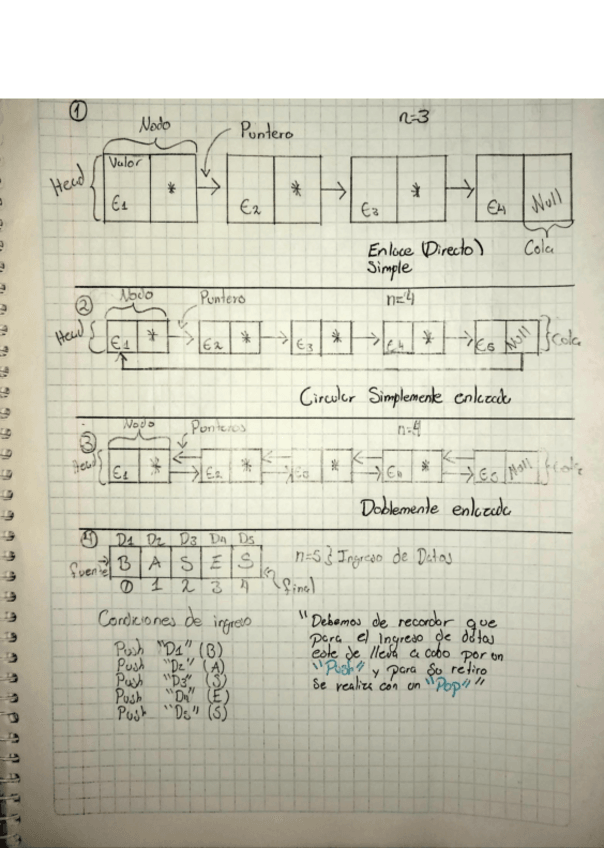 ① n=3
Nodo Puntero
Head Valor
E1 * E2 * E3 * E4 Null
Enlace (Directo) Cola
Simple
② Nodo Puntero n=4
Head E1 * E2 * E3 * E4 * E5 Null Cola
Circular Simplemente enlazada
③ Nodo Punteros n=4
Head E1 * E2 * * E4 * E5 Null Cola
Doblemente enlazada
④ D1 D2 D3 D4 D5
fuente B A S E S n=5 } Ingreso de Datos
0 1 2 3 4 final
Condiciones de ingreso
Push "D1" (B)
Push "D2" (A)
Push "D3" (S)
Push "D4" (E)
Push "D5" (S)
"Debemos de recordar que
para el Ingreso de datos
este se lleva a cabo por un
"Push" y para su retiro
se realiza con un "Pop" "